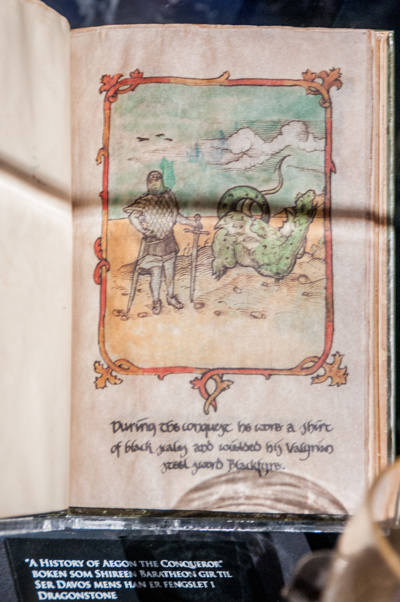 During the conquest he wore a shirt
of black scales and wielded his Valyrian
steel sword Blackfyre.
"A History of Aegon the Conqueror."
Boken som Shireen Baratheon gir til
Ser Davos mens han er fengslet i
Dragonstone